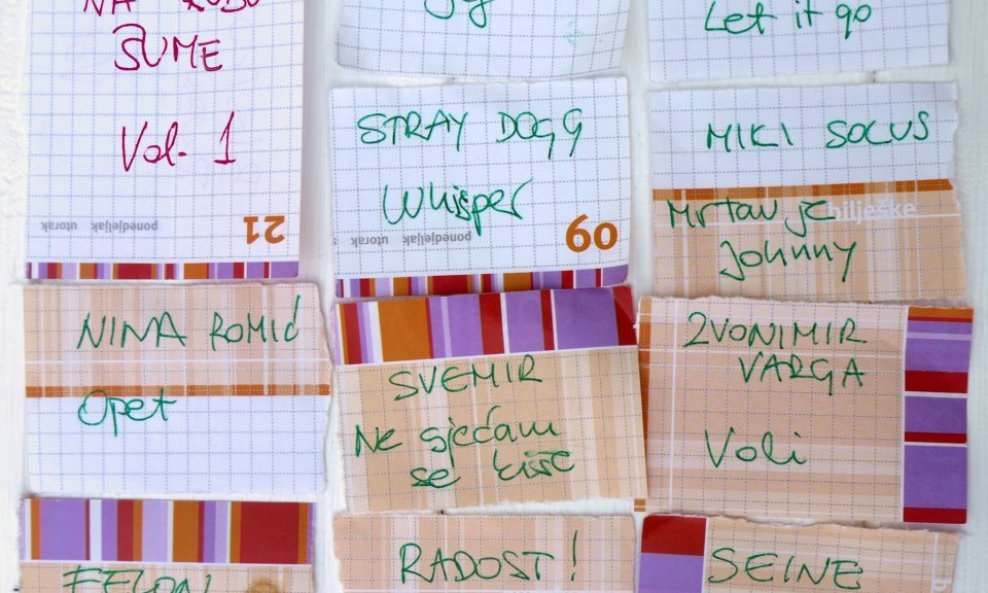 NA RUBU
ŠUME
Vol. 1
ponedjeljak utorak
21
Let it go
STRAY DOGG
Whisper
ponedjeljak utorak
60
MIKI SOLUS
bilješke
Mrtav je
Johnny
NINA ROMIĆ
Opet
SVEMIR
Ne sjećam
se kiše
ZVONIMIR
VARGA
Voli
FELON
RADOST!
SEINE